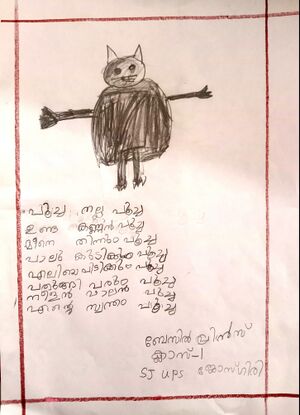 പൂച്ച നല്ല പൂച്ച
ഉണ്ട കണ്ണൻ പൂച്ച
മീനെ തിന്നും പൂച്ച
പാലു കുടിക്കും പൂച്ച
എലിയെ പിടിക്കും പൂച്ച
പതുങ്ങി പതുങ്ങി പൂച്ച
നീളൻ വാലൻ പൂച്ച
എന്റെ സ്വന്തം പൂച്ച
ബേസിൽ പ്രിൻസ്
ക്ലാസ്-1
SJ UPS ജോസ്ഗിരി